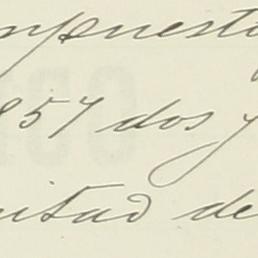 mpuesto
857 dos y
mitad de